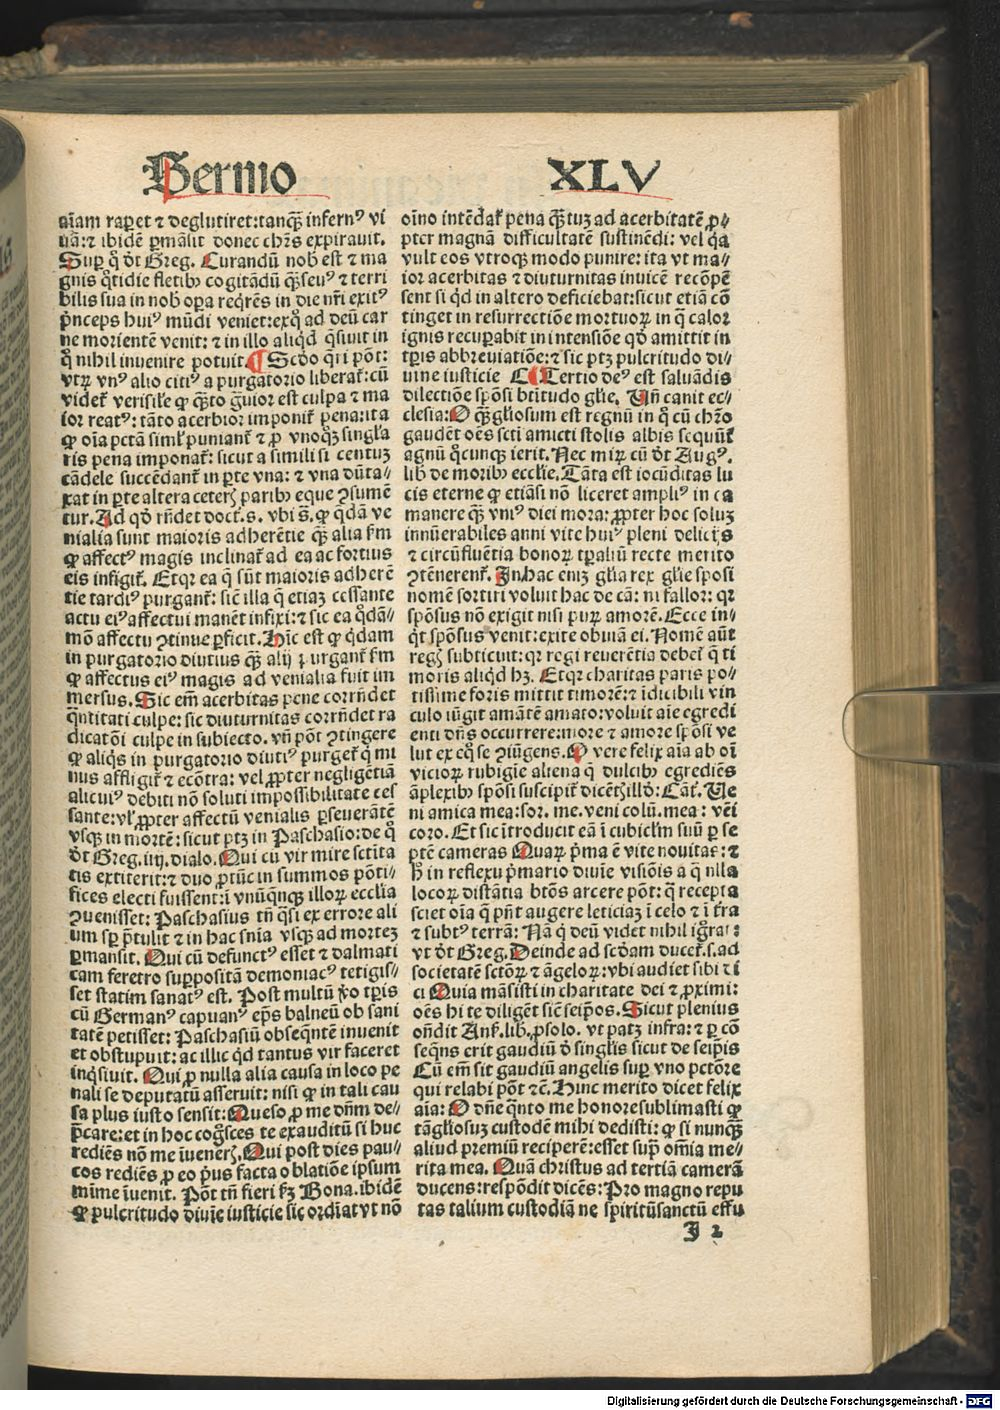 Sermo XLV
aīam raperet ⁊ deglutiret: tanq̄ꝫ infernꝰ vi
uā: ⁊ ibidē ꝑmāsit donec chr̄s expirauit.
Suꝑ q̊ dt̄ Greg. Curandū nob̄ est ⁊ ma
gnis q̊tidie fletibꝰ cogitādū q̄ꝫ seuꝰ ⁊ terri
bilis sua in nob̄ oꝑa reqrēs in die nr̄i exitꝰ
pn̄ceps huiꝰ mūdi veniet: ex quo ad deū car
ne morientē venit: ⁊ in illo aliqd q̄siuit in
q̊ nihil inuenire potuit. ¶ Scd̄o q̄ri pōt:
vtꝝ vnꝰ alio citiꝰ a purgatorio liberat̄: cū
videt̄ verisil̄e ꝙ q̄ꝫto grauior est culpa ⁊ ma
ior reatꝰ: tāto acerbior imponit̄ pena: ita
ꝙ oīa pctā simĺ puniant̄ ⁊ ꝓ vnoqꝫ singĺa
ris pena imponat̄: sicut a simili si centuꝫ
cādele succēdant̄ in ꝑte vna: ⁊ vna dūta⸗
xat in ꝑte altera ceterꝫ paribꝰ eque ꝯsumē
tur. Ad qd̄ rn̄det doct. s. vbi s̄. ꝙ qdā ve
nialia sunt maioris adherētie q̄ꝫ alia ẜm
ꝙ affectꝰ magis inclinat̄ ad ea ac fortius
eis infigit̄. Et qꝛ ea q̄ sūt maioris adherē
tie tardiꝰ purgant̄: sic̄ illa q̄ etiaꝫ cessante
actu eiꝰ affectui manēt infixi: ⁊ sic ea qdā⸗
mō affectu ꝯtinue ꝑficit. Hīc est ꝙ qdam
in purgatorio diutius q̄ꝫ alij purgant̄ ẜm
ꝙ affectus eiꝰ magis ad venialia fuit im
mersus. Sic em̄ acerbitas pene corrn̄det
q̄ntitati culpe: sic diuturnitas corrn̄det ra
dicatōi culpe in subiecto. vn̄ pōt ꝯtingere
ꝙ aliqs in purgatorio diutiꝰ purget̄ q̄ mi
nus affligit̄ ⁊ ecōtra: vel ꝓpter negligētiā
alicuiꝰ debiti nō soluti impossibilitate ces
sante: vĺ ꝓpter affectū venialis ꝑseuerātē
vsqꝫ in mortē: sicut ptꝫ in Paschasio: de q̊
dt̄ Greg. iiij. dialo. Qui cū vir mire sctīta
tis extiterit: ⁊ duo ꝓtūc in summos pōti⸗
fices electi fuissent: ī vnūqꝫ illoꝝ eccĺia
ꝯuenisset: Paschasius tn̄ q̄si ex errore ali
um sꝑ ptulit ⁊ in hac sn̄ia vsqꝫ ad morteꝫ
ꝑmansit. Qui cū defunctꝰ esset ⁊ dalmati
cam feretro supꝑositā demoniacꝰ tetigis⸗
set statim sanatꝰ est. Post multū ꝟo tꝑis
cū Germanꝰ capuanꝰ ep̄s balneū ob sani
tatē petisset: Paschasiū obseqn̄tē inuenit
et obstupuit: ac illic qd tantus vir faceret
inqsiuit. Qui ꝓ nulla alia causa in loco pe
nali se deputatū asseruit: nisi ꝙ in tali cau
sa plus iusto sensit: Queso ꝓ me dn̄m de⸗
p̄care: et in hoc cogsces te exauditū si huc
rediēs nō me īuenerꝭ. Qui post dies pau⸗
cos rediēs ꝓ eo pus facta oblatiōe ipsum
mīme īuenit. Pōt tn̄ fieri ẜꝫ Bona. ibidē
ꝙ pulcritudo diuīe iusticie sic ordīat vt nō
oīno intēdat̄ pena q̄ꝫtuꝫ ad acerbitatē ꝓ⸗
pter magnā difficultatē sustinēdi: vel qa
vult eos vtroqꝫ modo punire: ita vt ma⸗
ior acerbitas ⁊ diuturnitas inuicē recōpē
sent si qd in altero deficiebat: sicut etiā cō
tinget in resurrectiōe mortuoꝝ in q̄ calor
ignis recuꝑabit in intensiōe qd̄ amittit in
tꝑis abbreuiatiōe: ⁊ sic ptꝫ pulcritudo di⸗
uine iusticie ¶ Tertio deꝰ est saluādis
dilectiōe spōsi btītudo glīe. Vn̄ canit ec⸗
clesia: O q̄ꝫ gl̄iosum est regnū in q̊ cū chr̄o
gaudēt oēs scti amicti stolis albis sequūt̄
agnū qcunqꝫ ierit. Nec miꝝ cū dt̄ Augꝰ.
lib̄ de moribꝰ eccĺie. Tāta est iocūditas lu
cis eterne ꝙ etiāsi nō liceret ampliꝰ in ea
manere q̄ꝫ vniꝰ diei mora: ꝓpter hoc soluꝫ
innūerabiles anni vite huiꝰ pleni delicijs
⁊ circūfluētia bonoꝝ tꝑaliū recte merito
ꝯtēnerent̄. In hac eniꝫ gĺia rex gĺie sposi
nomē sortiri voluit hac de cā: ni fallor: qꝛ
spōsus nō exigit nisi puꝝ amorē. Ecce in⸗
qt spōsus venit: exite obuiā ei. Nomē aūt
regꝭ subticuit: qꝛ regi reuerētia debet̄ q̄ ti
moris aliqd hꝫ. Et qꝛ charitas paris po⸗
tissime foris mittit timorē: ⁊ īdicibili vin
culo iūgit amātē amato: voluit aīe egredi
enti dn̄s occurrere: more ⁊ amore spōsi ve
lut ex eq̊ se ꝯiūgens. O vere felix aīa ab oī
vicioꝝ rubigīe aliena q̄ dulcibꝰ egrediēs
āplexibꝰ spōsi suscipit̄ dicētꝭ illd̄: Cāt. Ve
ni amica mea: sor. me. veni colū. mea: vēi
coro. Et sic ītroducit eā ī cubicĺm suū ꝑ se
ptē cameras Quaꝝ pma ē vite nouitas: ⁊
h̄ in reflexu pmario diuīe visiōis a q̄ nlla
locoꝝ distātia btōs arcere pōt: q̄ recepta
sciet oīa q̄ pn̄t augere leticiaꝫ ī celo ⁊ ī tr̄a
⁊ subtꝰ terrā: Nā q̄ deū videt nihil igrat:
vt dt̄ Greg. Deinde ad scd̄am ducet̄. s. ad
societatē sctōꝝ ⁊ āgeloꝝ: vbi audiet sibi di
ci Quia māsisti in charitate dei ⁊ ꝓximi:
oēs hi te diligēt sic̄ seipōs. Sicut plenius
on̄dit Anẜ. lib. ꝓsolo. vt patꝫ infra: ⁊ ꝑ cō
seqn̄s erit gaudiū d̄ singĺis sicut de seip̄is
Cū em̄ sit gaudiū angelis suꝑ vno pctōre
qui relabi pōt ⁊c̄. Hinc merito dicet felix
aīa: O dn̄e q̄nto me honore sublimasti ꝙ
tā gĺiosuꝫ custodē mihi dedisti: ꝙ si nunq̄ꝫ
aliud premiū reciperē: esset suꝑ om̄ia me⸗
rita mea. Quā christus ad tertiā camerā
ducens: respōdit dicēs: Pro magno repu
tas talium custodiā ne spiritūsanctū effu
I 2
Digitalisierung gefördert durch die Deutsche Forschungsgemeinschaft - DFG